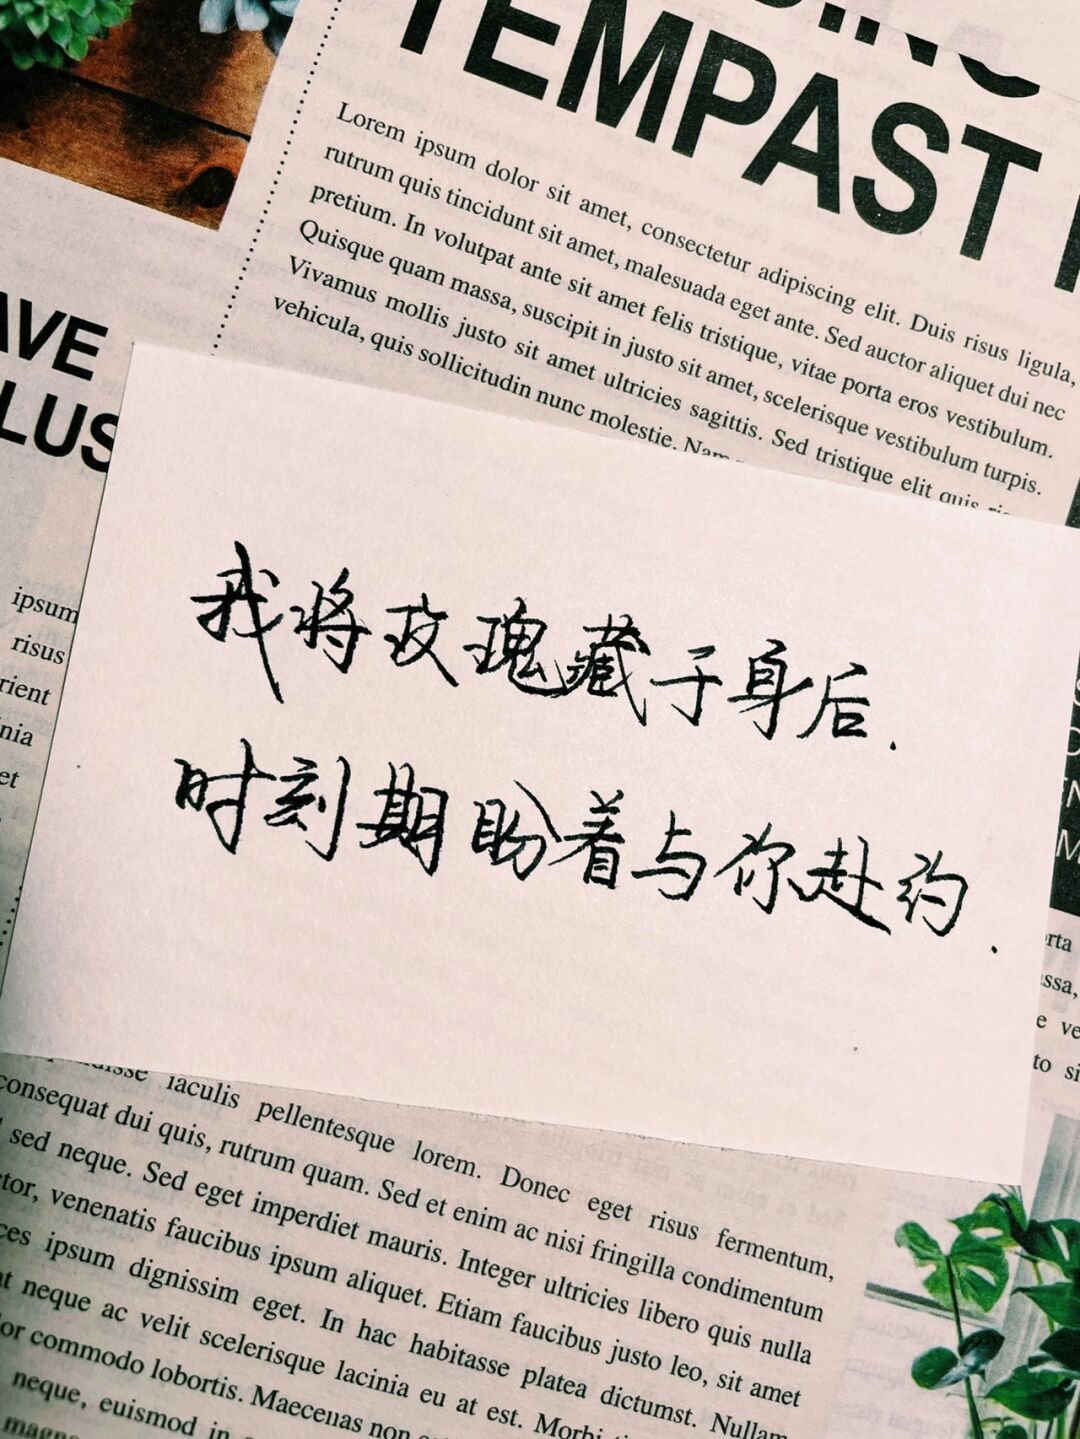 DING
TEMPAST
Lorem ipsum dolor sit amet, consectetur adipiscing elit. Duis risus ligula,
rutrum quis tincidunt sit amet, malesuada eget ante. Sed auctor aliquet dui nec
pretium. In volutpat ante sit amet felis tristique, vitae porta eros vestibulum.
Quisque quam massa, suscipit in justo sit amet, scelerisque vestibulum turpis.
Vivamus mollis justo sit amet ultricies sagittis. Sed tristique elit quis
vehicula, quis sollicitudin nunc molestie. Nam
AVE
LUS
ipsum
risus
rient
nia
et
我将玫瑰藏于身后.
时刻期盼着与你赴约.
rta
ssa,
e ve
to si
iaculis pellentesque lorem. Donec eget risus fermentum,
consequat dui quis, rutrum quam. Sed et enim ac nisi fringilla condimentum
sed neque. Sed eget imperdiet mauris. Integer ultricies libero quis nulla
tor, venenatis faucibus ipsum aliquet. Etiam faucibus justo leo, sit amet
ces ipsum dignissim eget. In hac habitasse platea dictumst. Nullam
at neque ac velit scelerisque lacinia eu at est. Morbi
or commodo lobortis. Maecenas non
neque, euismod in
magna